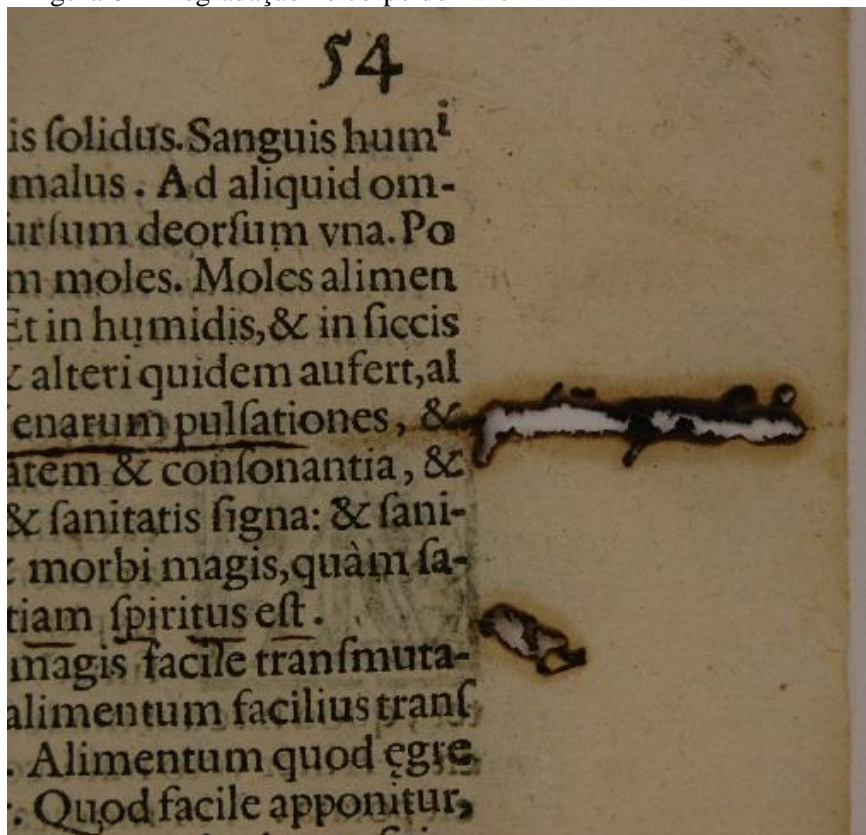 54
is ſolidus. Sanguis humi
malus. Ad aliquid om-
urſum deorſum vna. Po
m moles. Moles alimen
Et in humidis, & in ſiccis
& alteri quidem aufert, al
enarum pulſationes, &
atem & conſonantia, &
& ſanitatis ſigna: & ſani-
morbi magis, quàm ſa-
tiam ſpiritus eſt.
magis facile tranſmuta-
alimentum facilius tranſ
. Alimentum quod ęgre
. Quod facile apponitur,